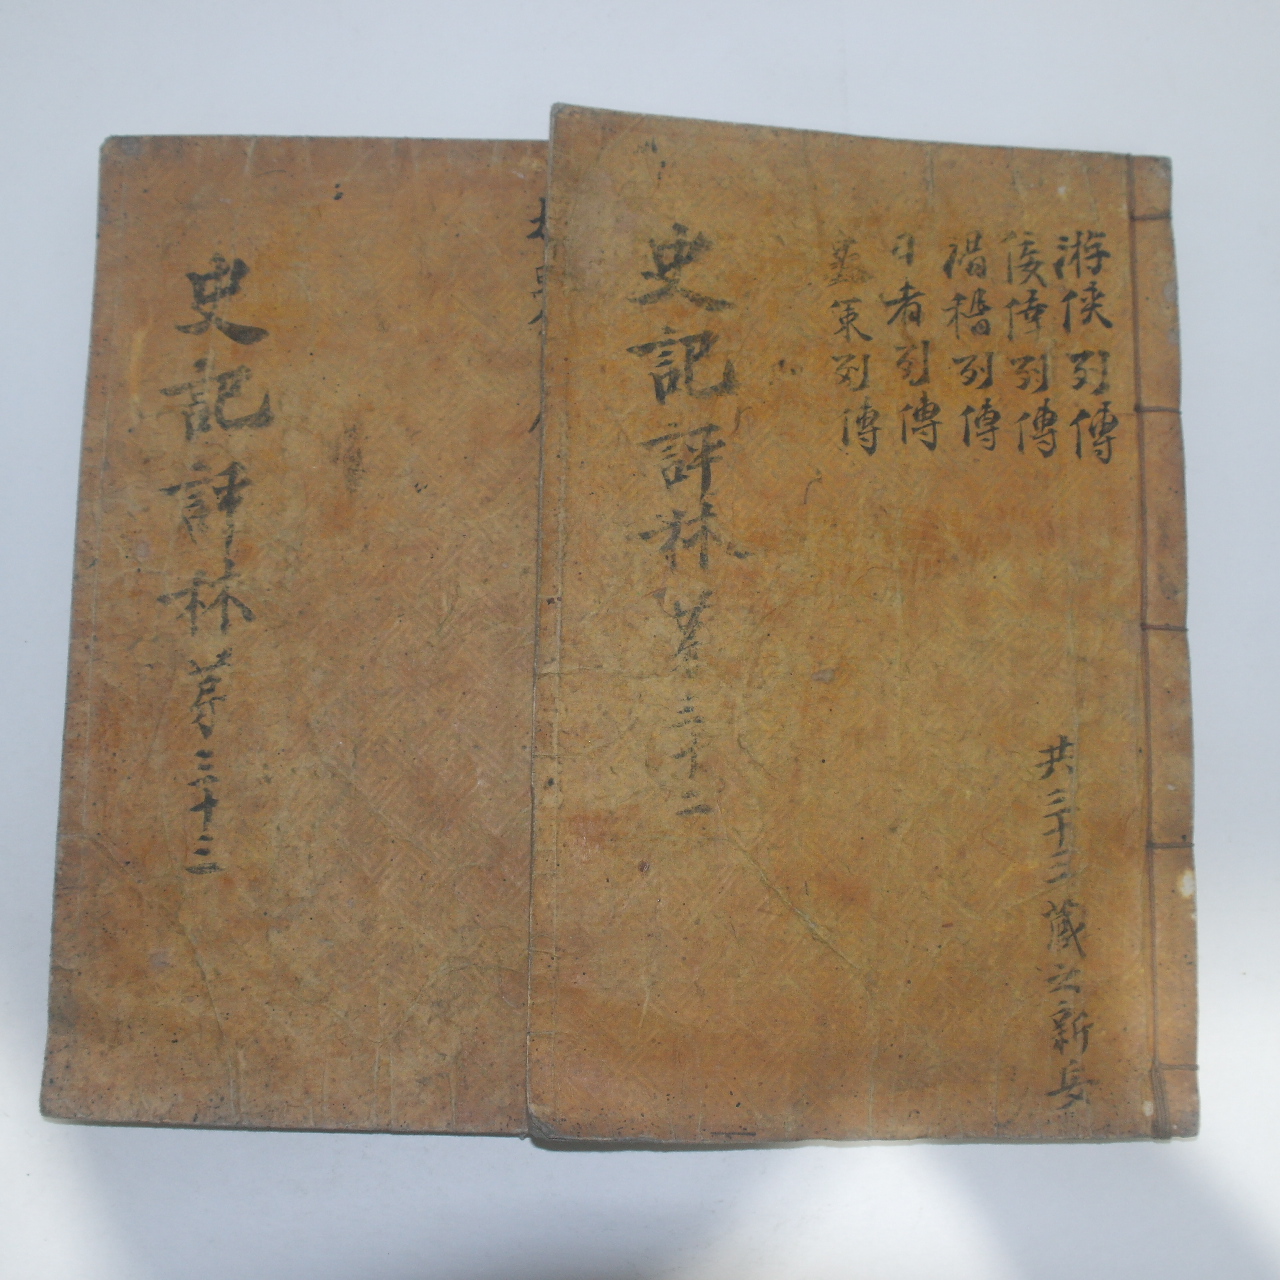 游俠列傳
佞倖列傳
滑稽列傳
日者列傳
龜策列傳
史記評林苐三十二
共三十三藏之新安
史記評林苐三十三